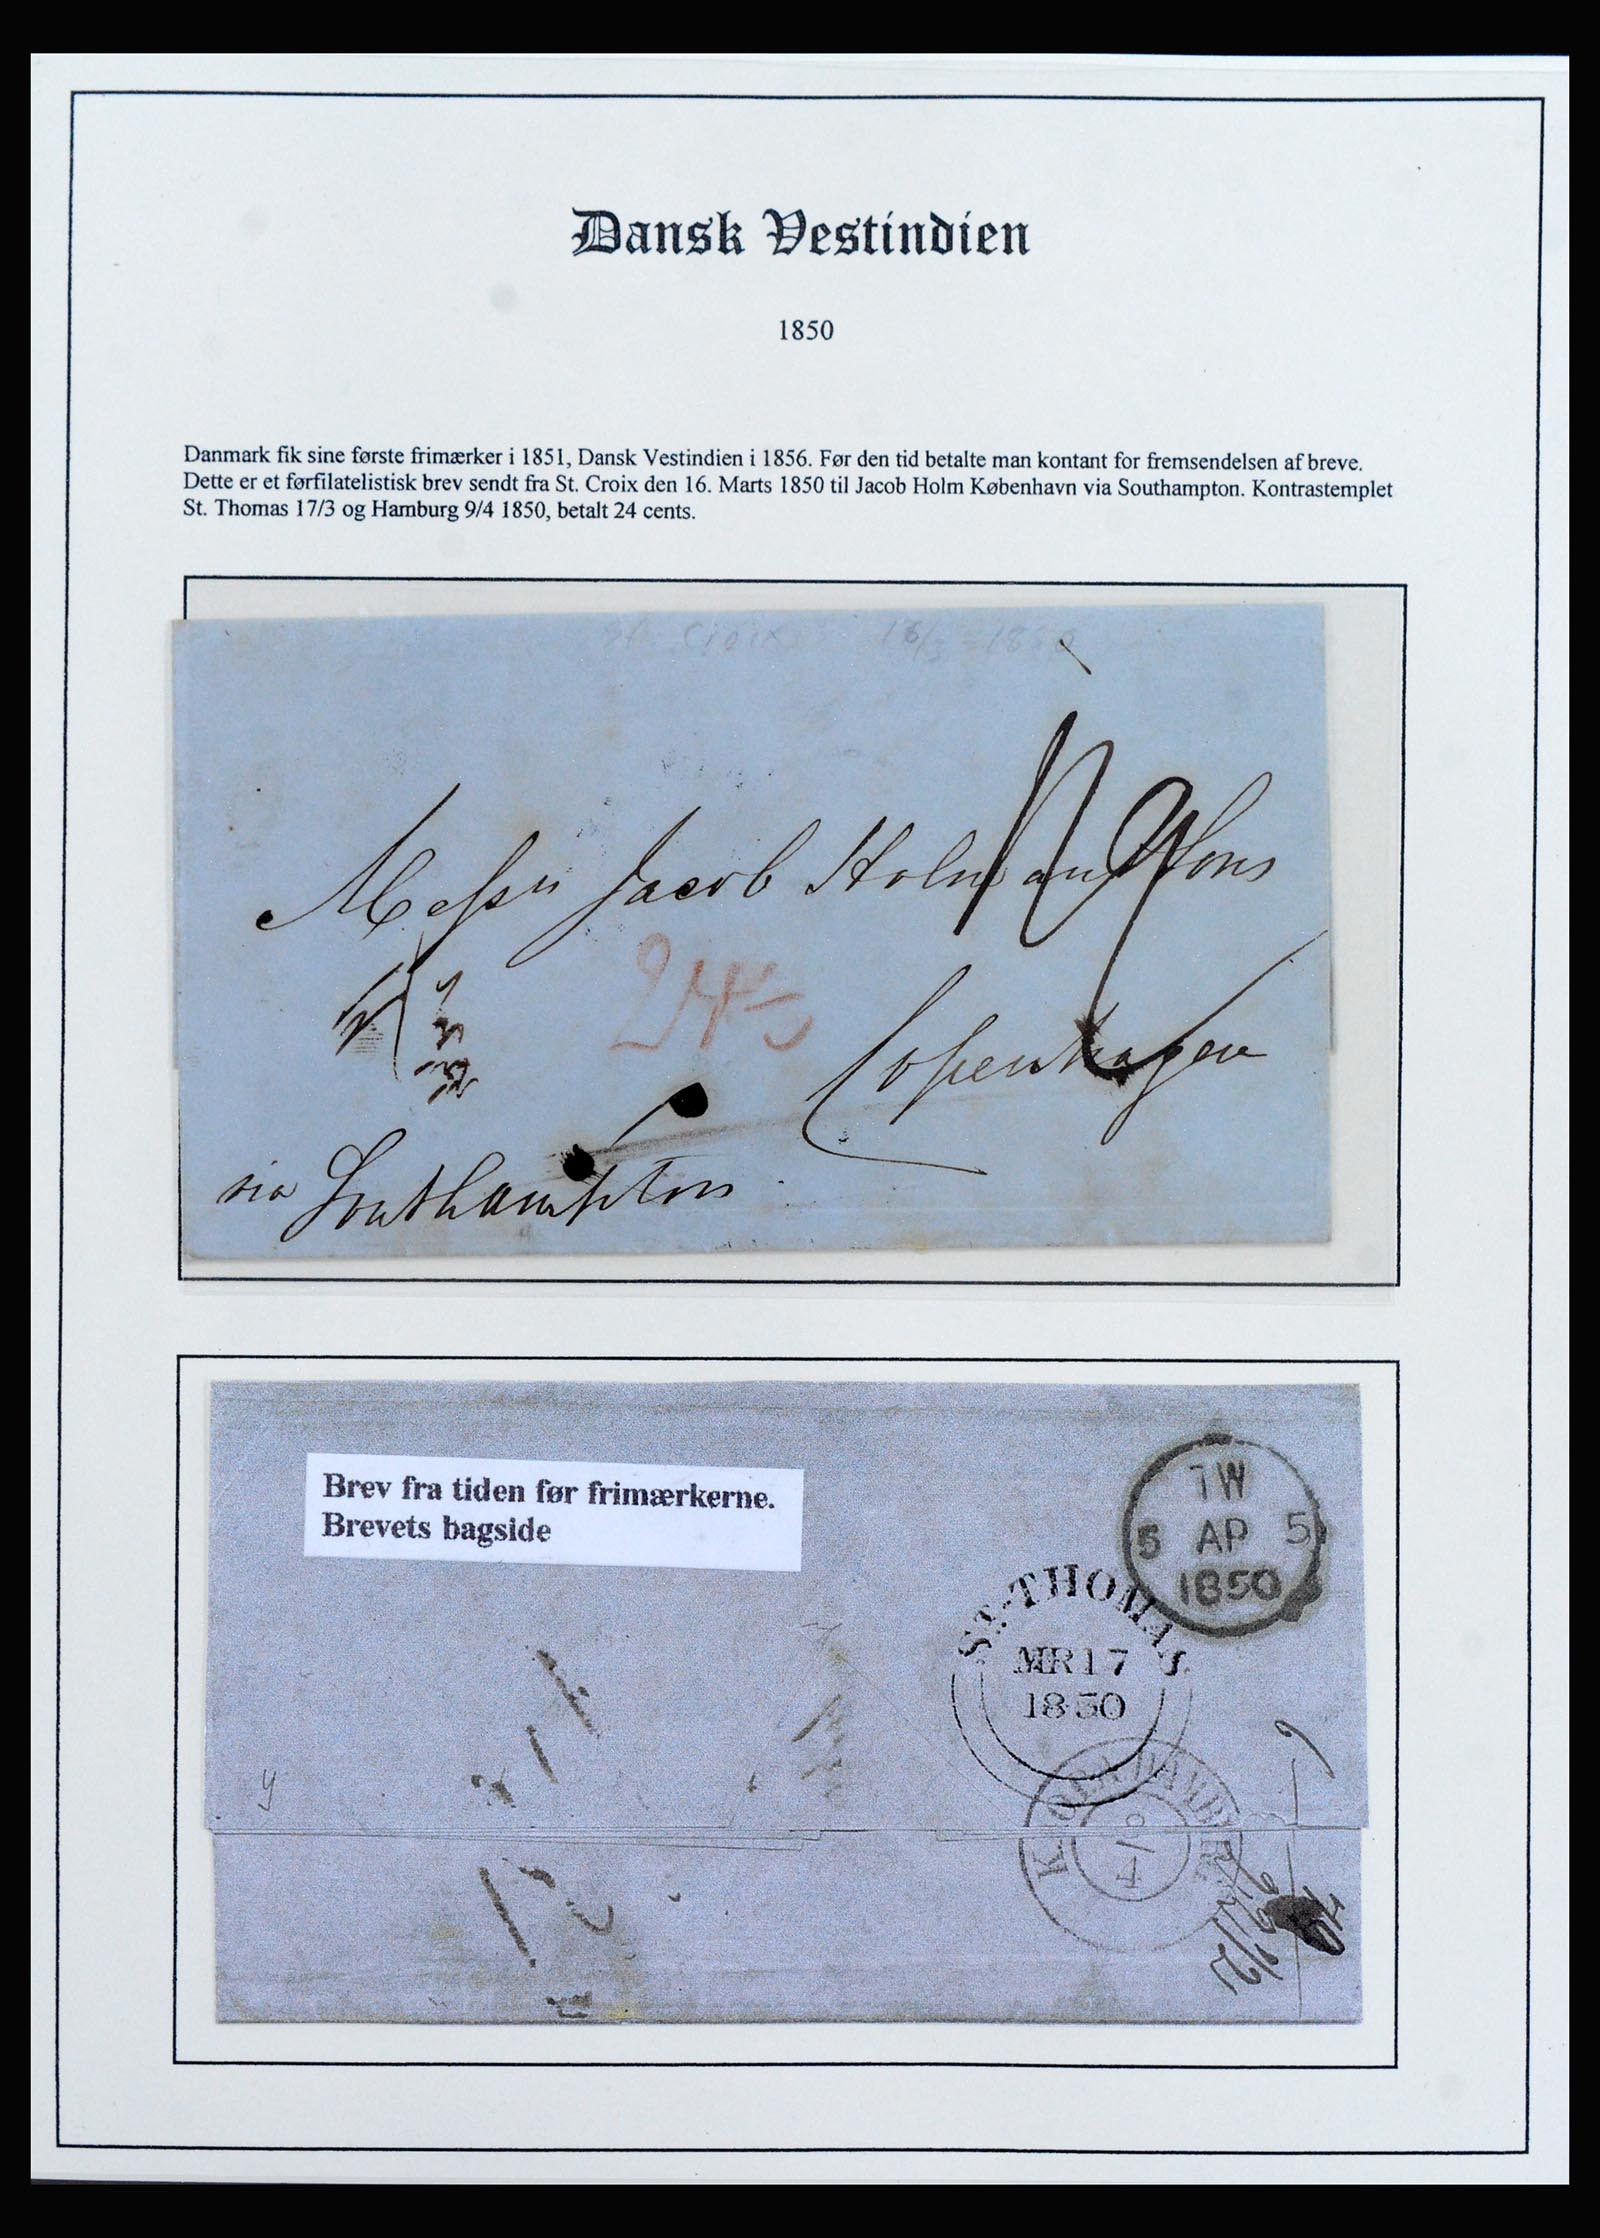 Dansk Vestindien
1850
Danmark fik sine første frimærker i 1851, Dansk Vestindien i 1856. Før den tid betalte man kontant for fremsendelsen af breve.
Dette er et førfilatelistisk brev sendt fra St. Croix den 16. Marts 1850 til Jacob Holm København via Southampton. Kontrastemplet
St. Thomas 17/3 og Hamburg 9/4 1850, betalt 24 cents.
St Croix 16/3 - 1850
Messrs Jacob Holm and Sons
24
Copenhagen
via Southampton
Brev fra tiden før frimærkerne.
Brevets bagside
TW
5 AP 5
1850
ST. THOMAS
MR 17
1850